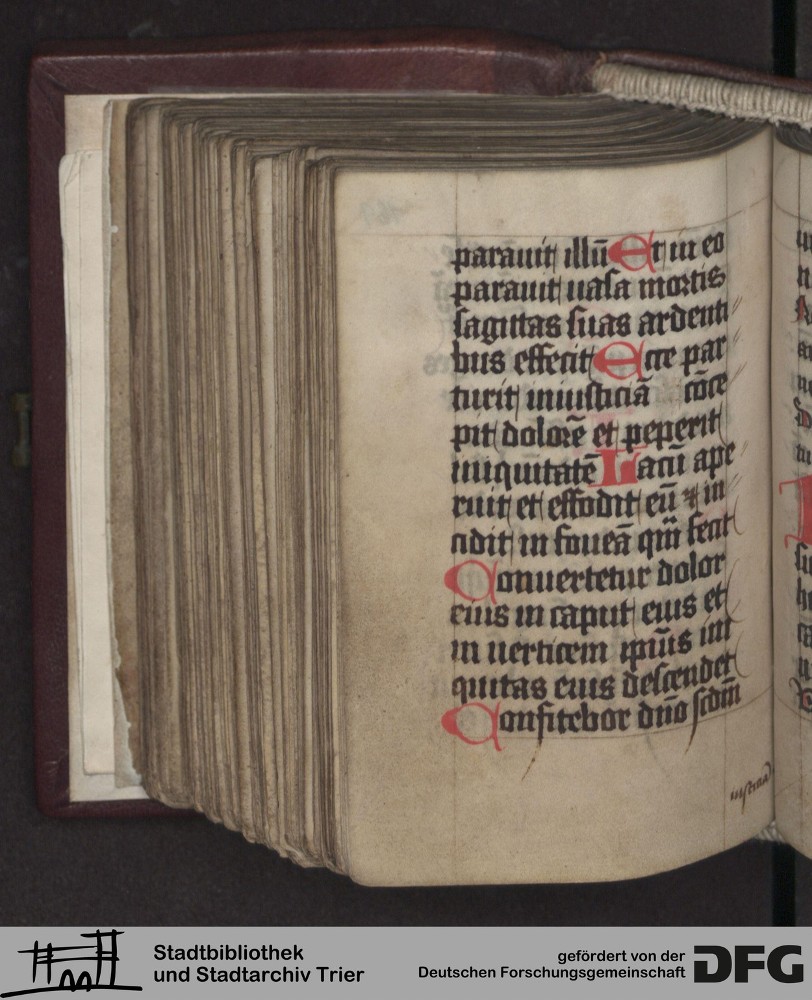 parauit illū Et in eo
parauit uasa mortis
sagittas suas ardenti
bus effecit Ecce par
turit iniusticiā cōce
pit dolorē et peperit
iniquitatē Lacū ape
ruit et effodit eū et in
cidit in foueā quā fecit
Conuertetur dolor
eius in caput eius et
in uerticem ipius ini
quitas eius descendet
Confitebor dno scdm
Stadtbibliothek
und Stadtarchiv Trier
gefördert von der
Deutschen Forschungsgemeinschaft
DFG